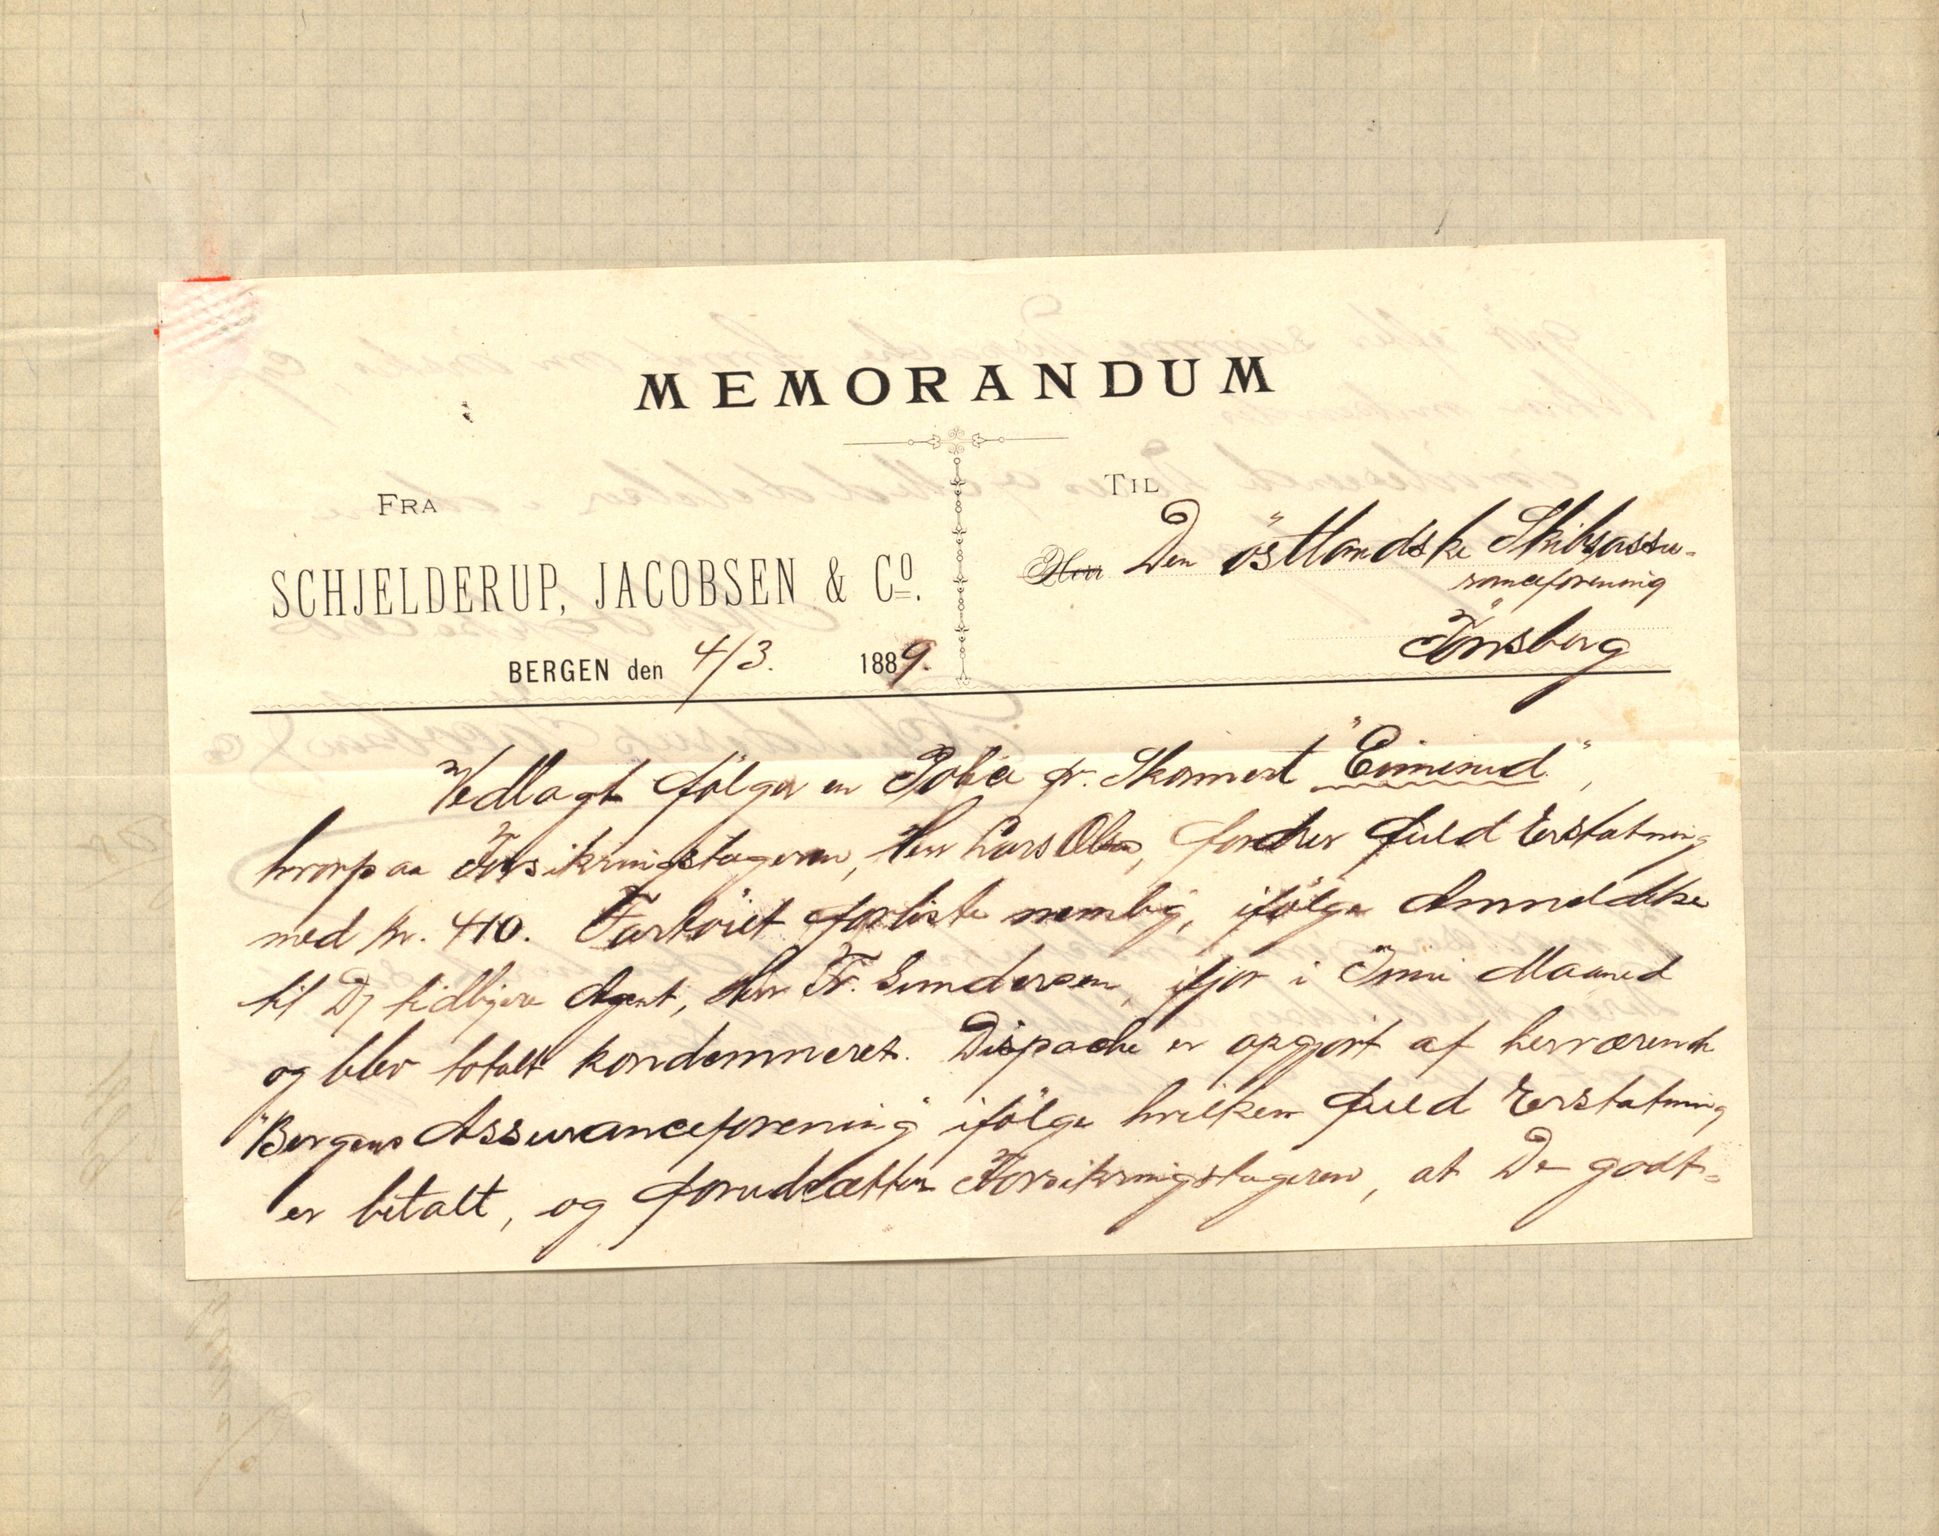 MEMORANDUM
FRA
SCHJELDERUP, JACOBSEN & Co.
BERGEN den 4/3. 1889.
TIL
Herr Den östlandske Skibsassu-
ranceforening
Tönsberg
Vedlagt fölger en Police pr. Skonnert "Eimund",
hvorpaa Forsikringstageren, Herr Lars Olsen, fordrer fuld Erstatning
med Kr. 410. Fartöiet forliste nemlig, ifölge Anmeldelse
til Dj tidligere Agent, Herr Fr. Gundersen, ifjor i Juni Maaned
og blev totalt kondemneret. Dispache er opgjort af herværende
"Bergens Assuranceforening" ifölge hvilken fuld Erstatning
er betalt, og forudsætter Forsikringstageren, at De godt-